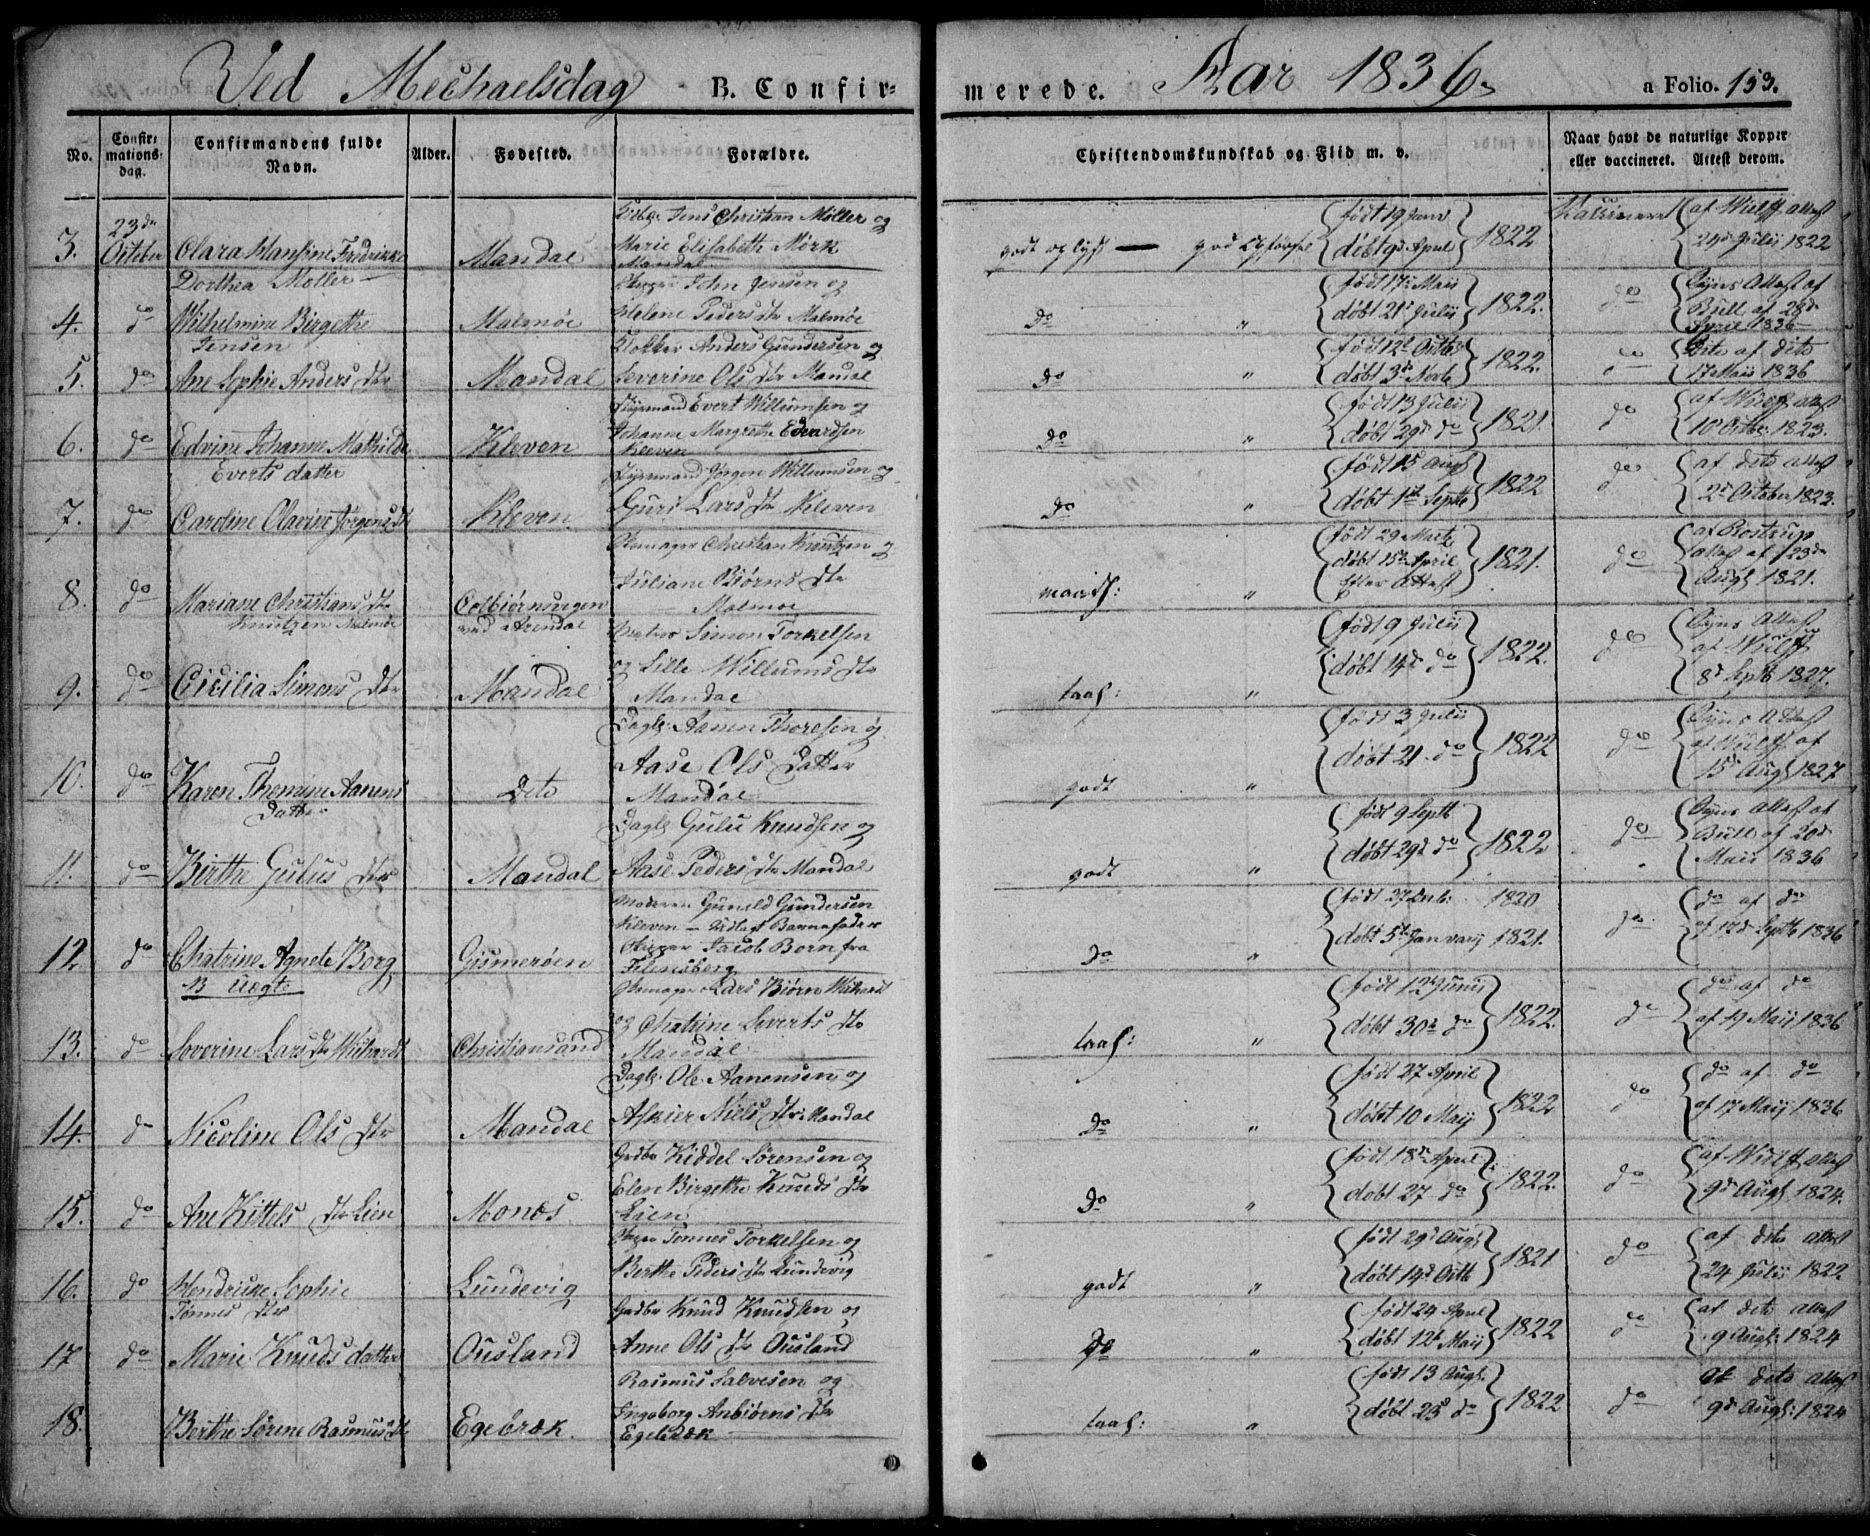 Ved Mechaelsdag B. Confir=
merede. Aar 1836. a Folio. 153.
No. Confir= mations= dag. Confirmandens fulde Navn. Alder. Fødested. Forældre. Christendomskundskab og Flid m. v. Naar havt de naturlige Kopper eller vaccineret. Attest derom.
Jens Christian Møller og født 19 Janv af Wulff attest
3. 23de October Clara Hansine Fredrikke Mandal Marie Elisabeth Mørk godt oplyst — god Opførsel døbt 9d April 1822 24d Julii 1822
Dorthea Møller — Mandal
Skipper John Jensen og født 17 Maii Syns Attest af
4. do Wilhelmine Birgethe Malmøe Helene Peders dtr Malmøe Do " døbt 21d Julii 1822. do Bull af 28d
Jensen April 1836
Klokker Anders Gundersen og født 12t Octbr Dito af dito
5. do Ane Sophie Anders dtr Mandal Severine Ols dtr Mandal Do " døbt 3d Novbr 1822. do 17 Maii 1836
Styrmand Evert Willumsen og født 13 Julii af Wulff attest
6. do Edvine Johanne Mathilde Kleven Johanne Margrethe Edvardsen Do " døbt 29d do 1821. do 10 Octbr 1823.
Everts datter Kleven
Styrmand Jørgen Willumsen og født 15 Augs af dito attest
7. do Caroline Olavine Jørgens dt Kleven Guri Lars dtr Kleven Do " døbt 1st Septbr 1822 do 2d October 1823.
Skomager Christian Knutzen og født 29 Marts af Rostrup
Juliane Biørns dtr døbt 15de April 1821. attest af 23de
8. do Mariane Christians dtr Colbiørnsvigen Malmøe " Efter Attest do Augs 1821.
Knutzen Malmøe ved Arendal
Simon Torkelsen født 9 Julii Syns Attest
og Sille Willums dtr 1822. af Wulff
9. do Cicilia Simons dtr Mandal Mandal taal: " døbt 14d do do 8d Septb 1827.
Dagl: Aanen Thoresen og født 3 Julii Syns Attest
Aase Ols Datter døbt 21 do 1822 af Wulff af
10. do Karen Themine Aanens Dito Mandal godt " do 15d Augs 1827
Datter
Dagl: Gulu Knudsen og født 9 Septb Syns Attest af
11. do Birthe Gulus dtr Mandal Aase Peders dtr Mandal godt " døbt 29d do 1822 do Bull af 20d
Maii 1836
Moderen Guneld Gundersen født 27 Decb: 1820 do af do
Kleven — Udlagt Barnefader døbt 5te Januarij 1821. af 12d Septb 1836
12. do Chatrine Agnete Borg Gismerøen Skipper Jacob Born fra Do " do
NB Uægte Flensborg
Skomager Lars Biørn Wichardt født 12 Junii do af do
og Chatrine Siverts dtr døbt 30d do 1822. af 19 Maij 1836
13. do Severine Lars dtr Wichardt Christiansand Mandal taal: " do
Dagl: Ole Aanensen og født 27 April do af do
14. do Nicoline Ols dtr Mandal Asbier Niels dtr: Mandal Do " døbt 10 Maij 1822 do af 17 Maij 1836
Gdbr Kiddel Sørensen og født 18d April af Wulff attest
Elen Birgethe Knuds dtr
15. do Ane Kittels dtr Lien Monæs Lien Do " døbt 27 do 1822. do 9d Augs 1824.
Skipper Tønnes Torkelsen og født 29d Augs af dito attest
16. do Hendrikke Sophie Lundevig Berthe Peders dtr Lundevig godt " døbt 14d Octb 1821 do 24 Julii 1822
Tønnes dtr
Gdbr Knud Knudsen og født 24 April af dito attest
17 do Marie Knuds datter Ousland Anne Ols dtr Ousland Do " døbt 12t Maij 1822 do 9 Augs: 1824
Rasmus Salvesen og født 13 Augs: af dito attest
18. Berthe Sørine Rasmus dt Egebræk. Ingeborg Anbiørns dtr taal: " døbt 25d do 1822 do 9d Augs: 1824
Egebræk —